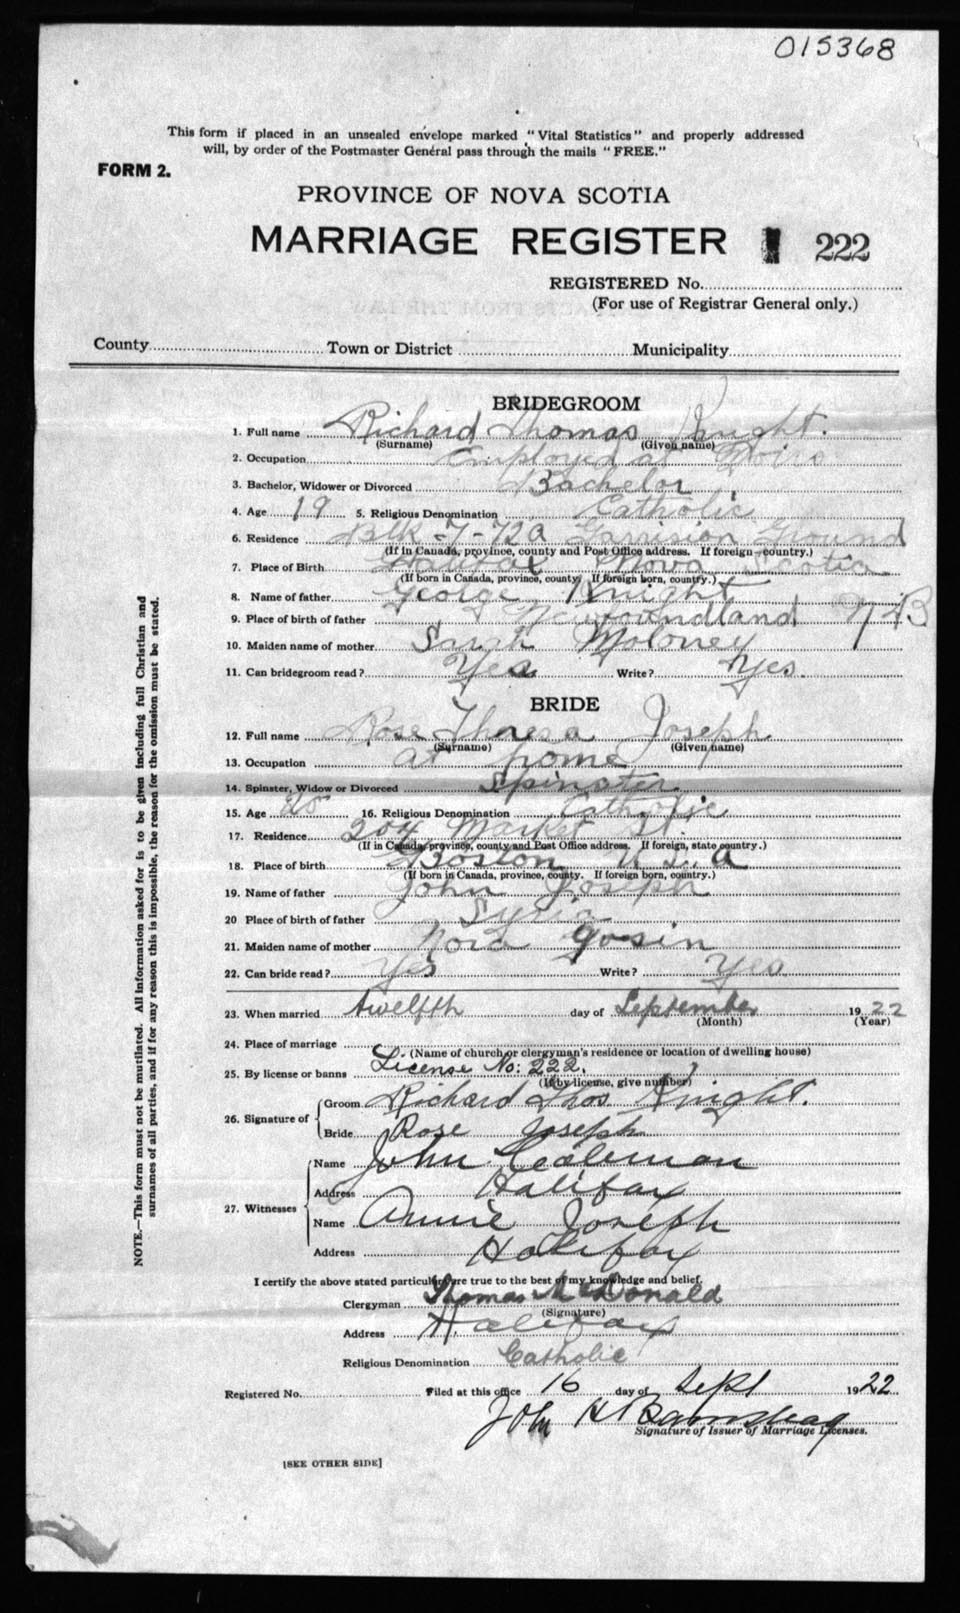 015368
This form if placed in an unsealed envelope marked "Vital Statistics" and properly addressed
will, by order of the Postmaster General pass through the mails "FREE."
FORM 2.
PROVINCE OF NOVA SCOTIA
MARRIAGE REGISTER 222
REGISTERED No.
(For use of Registrar General only.)
County Town or District Municipality
BRIDEGROOM
1. Full name Richard Thomas Knight.
(Surname) (Given name)
2. Occupation Employed at
3. Bachelor, Widower or Divorced Bachelor
4. Age 19 5. Religious Denomination Catholic
6. Residence Blk-7-72a Garrision Ground
(If in Canada, province, county and Post Office address. If foreign country.)
7. Place of Birth Halifax Nova Scotia
(If born in Canada, province, county. If foreign born, country.)
8. Name of father George Knight
9. Place of birth of father Newfoundland
10. Maiden name of mother Sarah Moloney
11. Can bridegroom read? Yes Write? Yes.
BRIDE
12. Full name Rose Theresa Joseph
(Surname) (Given name)
13. Occupation at home
14. Spinster, Widow or Divorced Spinster
15. Age 20 16. Religious Denomination Catholic
17. Residence 204 Market St.
(If in Canada, province, county and Post Office address. If foreign, state country.)
18. Place of birth Boston U.S.A
(If born in Canada, province, county. If foreign born, country.)
19. Name of father John Joseph
20 Place of birth of father Syria
21. Maiden name of mother Nora Gosin
22. Can bride read? Yes Write? Yes
23. When married twelfth day of September 1922
(Month) (Year)
24. Place of marriage
(Name of church or clergyman's residence or location of dwelling house)
25. By license or banns License No: 222.
(If by license, give number)
26. Signature of Groom Richard Thos Knight.
Bride Rose Joseph
27. Witnesses Name John Coaleman
Address Halifax
Name Annie Joseph
Address Halifax
I certify the above stated particulars are true to the best of my knowledge and belief.
Clergyman Thomas McDonald
(Signature)
Address Halifax
Religious Denomination Catholic
Registered No. Filed at this office 16 day of Sept 1922
John H
Signature of Issuer of Marriage Licenses.
[SEE OTHER SIDE]
NOTE.—This form must not be mutilated. All information asked for is to be given including full Christian and
surnames of all parties, and if for any reason this is impossible, the reason for the omission must be stated.